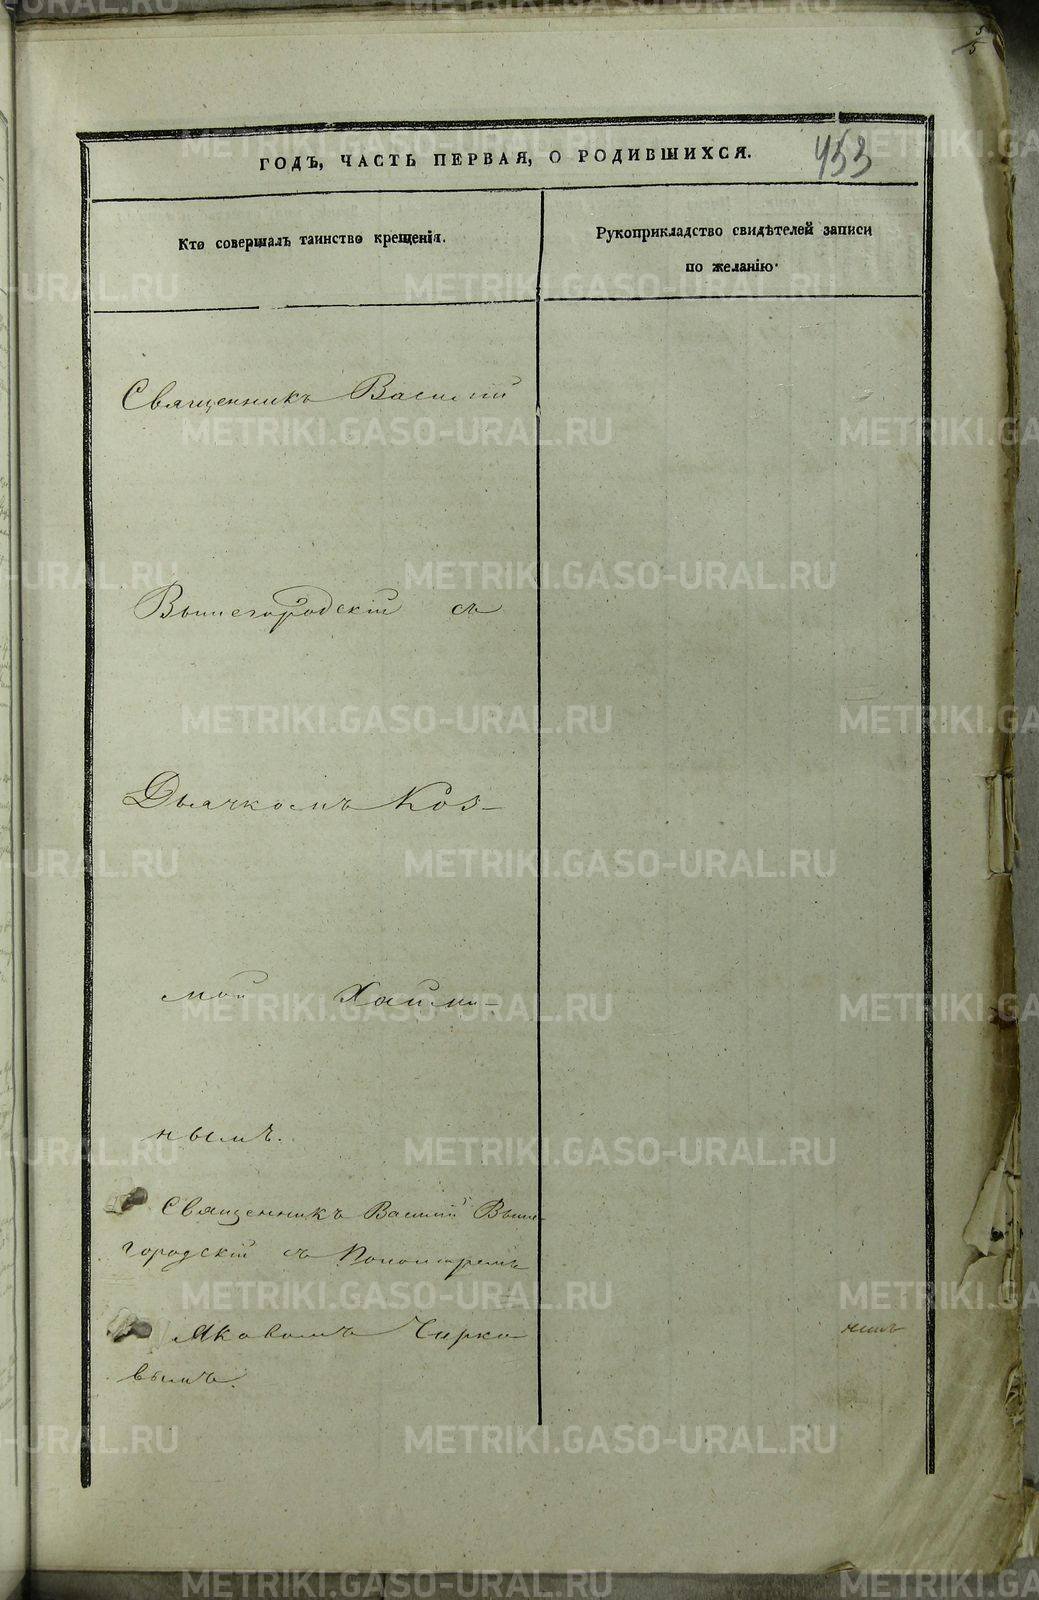 5
5
453
ГОДЪ, ЧАСТЬ ПЕРВАЯ, О РОДИВШИХСЯ.
Кто совершалъ таинство крещенія.
Рукоприкладство свидѣтелей записи
по желанію.
Священникъ Василій
Вышегородскій съ
Дьячкомъ Коз-
мой Хайми-
нымъ.
Священникъ Василій Выше-
городскій съ Пономаремъ
Яковомъ Чирко-
вымъ.
METRIKI.GASO-URAL.RU